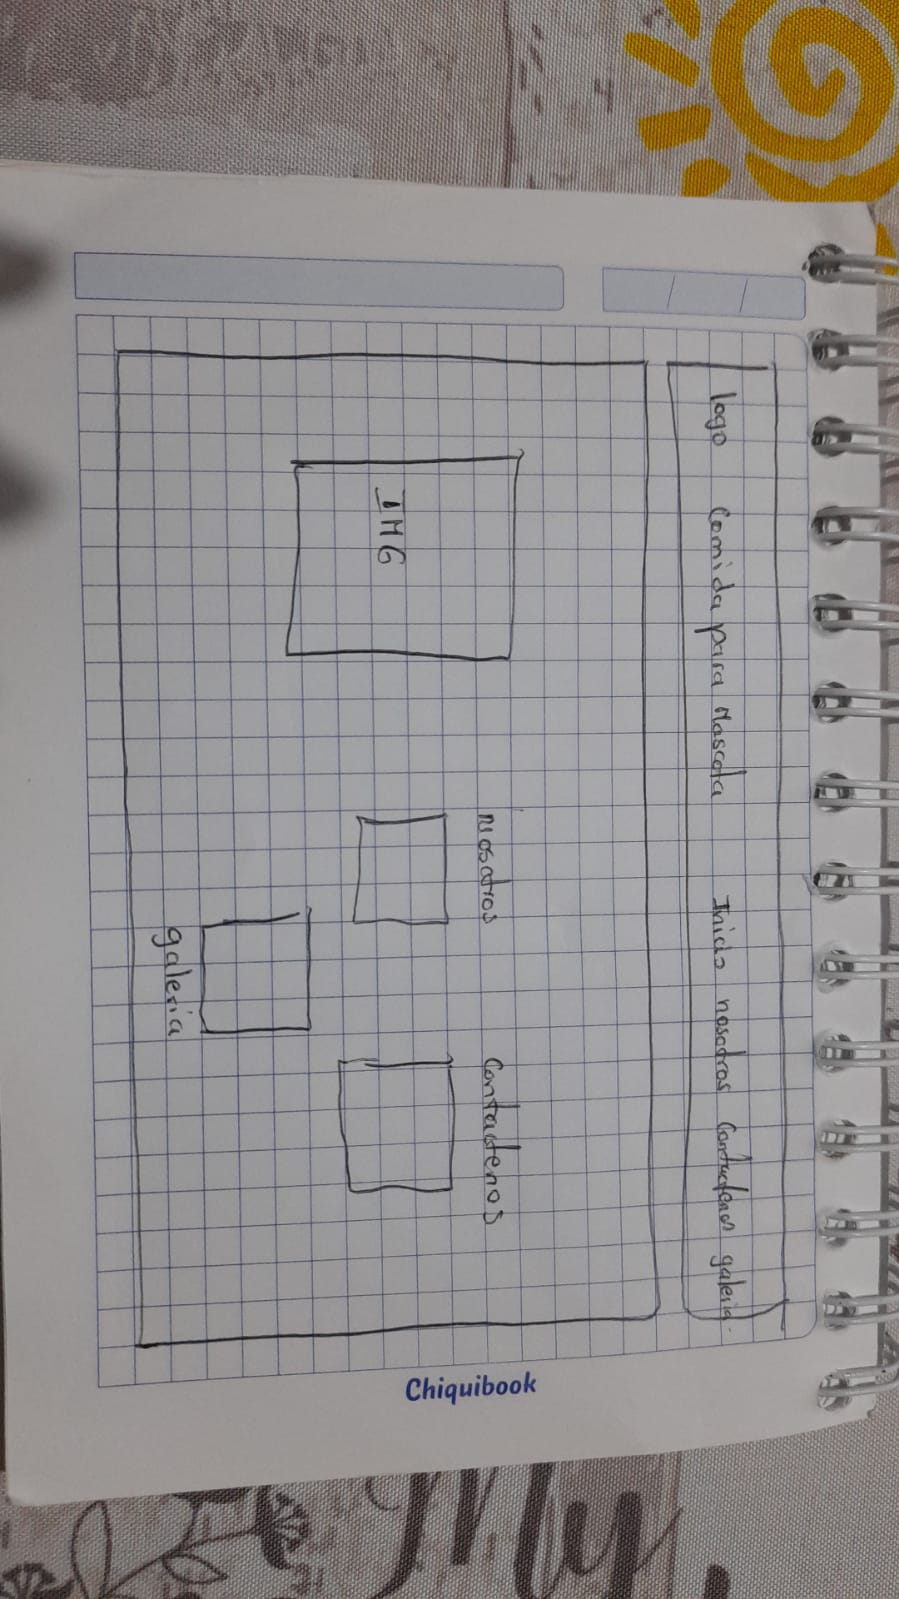 logo Comida para Mascota Inicio nosotros Contactenos galeria.
Nosotros
Contactenos
IMG
galeria
Chiquibook
My